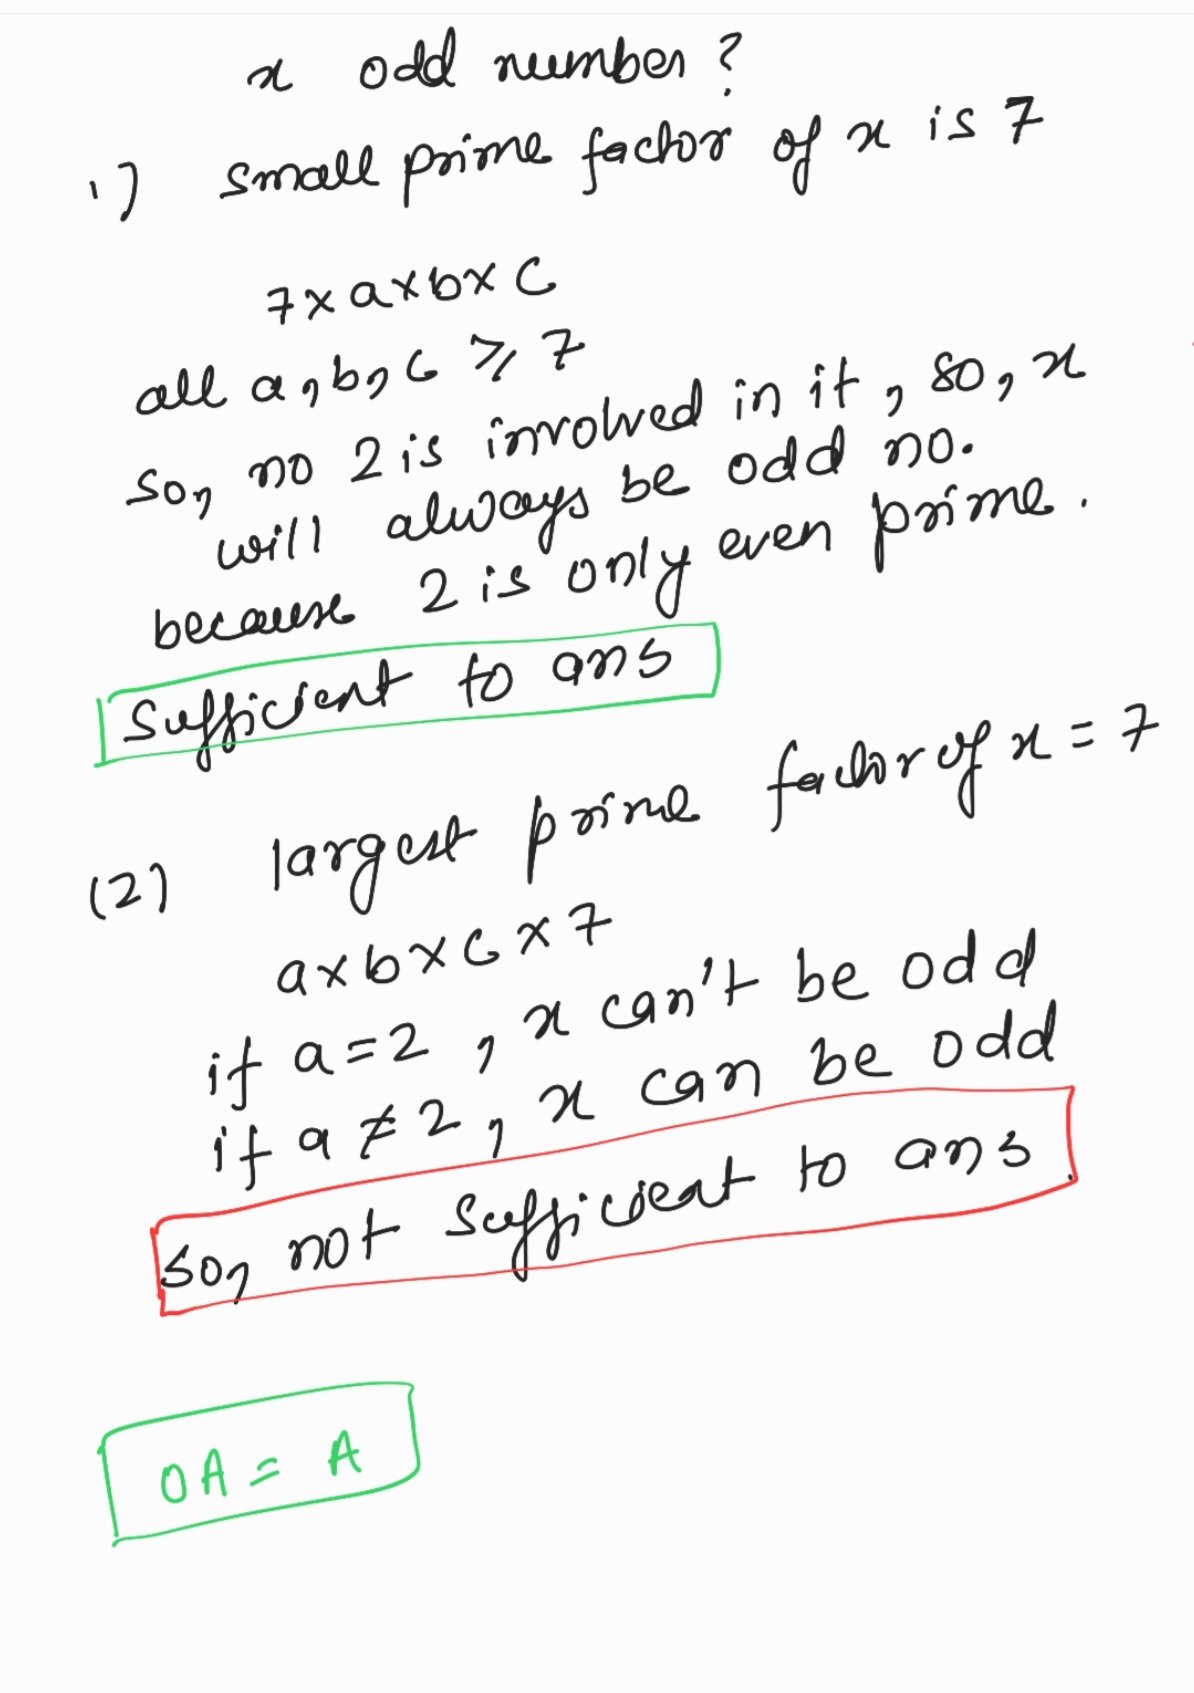 x odd number?
1) small prime factor of x is 7
7×a×b×c
all a,b,c ≥ 7
so, no 2 is involved in it, so, x
will always be odd no.
because 2 is only even prime.
Sufficient to ans
(2) largest prime factor of x = 7
a×b×c×7
if a=2, x can't be odd
if a≠2, x can be odd
so, not sufficient to ans
OA = A